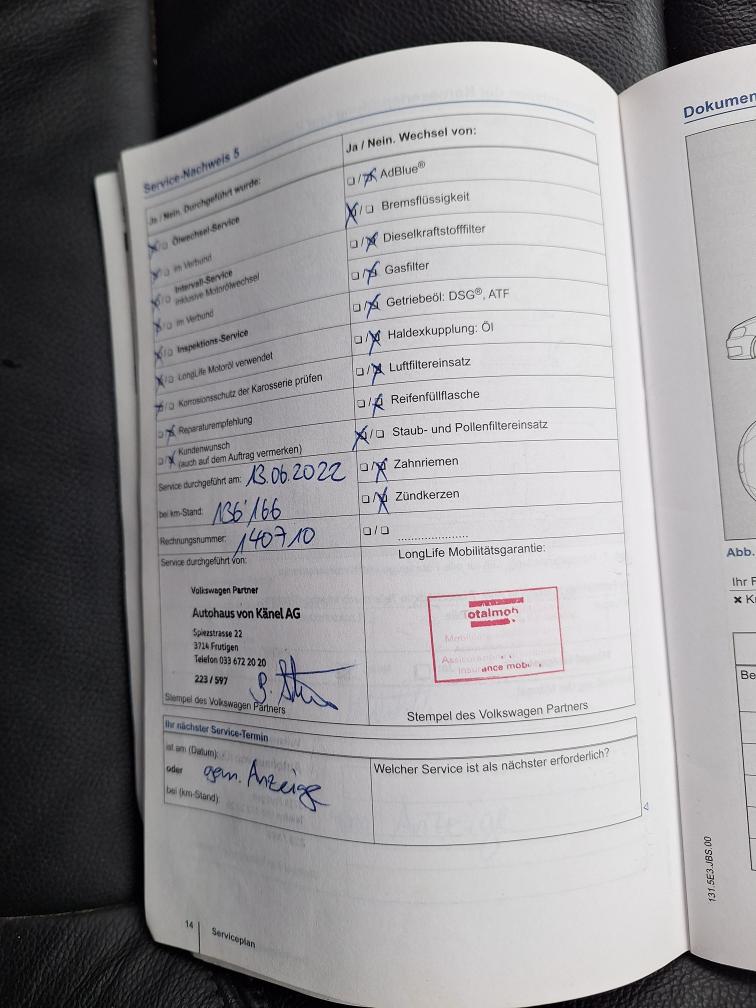 Service-Nachweis 5
Ja / Nein. Durchgeführt wurde:
☒/☐ Ölwechsel-Service
☒/☐ im Verbund
☒/☐ Intervall-Service
inklusive Motorölwechsel
☒/☐ im Verbund
☒/☐ Inspektions-Service
☒/☐ LongLife Motoröl verwendet
☒/☐ Korrosionsschutz der Karosserie prüfen
☐/☒ Reparaturempfehlung
☐/☒ Kundenwunsch
(auch auf dem Auftrag vermerken)
Service durchgeführt am: 13.06.2022
bei km-Stand: 136'166
Rechnungsnummer: 140710
Service durchgeführt von:
Volkswagen Partner
Autohaus von Känel AG
Spiezstrasse 22
3714 Frutigen
Telefon 033 672 20 20
223 / 597
Stempel des Volkswagen Partners
Ja / Nein. Wechsel von:
☐/☒ AdBlue®
☒/☐ Bremsflüssigkeit
☐/☒ Dieselkraftstofffilter
☐/☒ Gasfilter
☐/☒ Getriebeöl: DSG®, ATF
☐/☒ Haldexkupplung: Öl
☐/☒ Luftfiltereinsatz
☐/☒ Reifenfüllflasche
☒/☐ Staub- und Pollenfiltereinsatz
☐/☒ Zahnriemen
☐/☒ Zündkerzen
☐/☐ .....................
LongLife Mobilitätsgarantie:
otalmob
Stempel des Volkswagen Partners
Ihr nächster Service-Termin
ist am (Datum):
oder gem. Anzeige
bei (km-Stand):
Welcher Service ist als nächster erforderlich?
14
Serviceplan
Dokumen
Abb.
Ihr F
Be
131.5E3.JBS.00